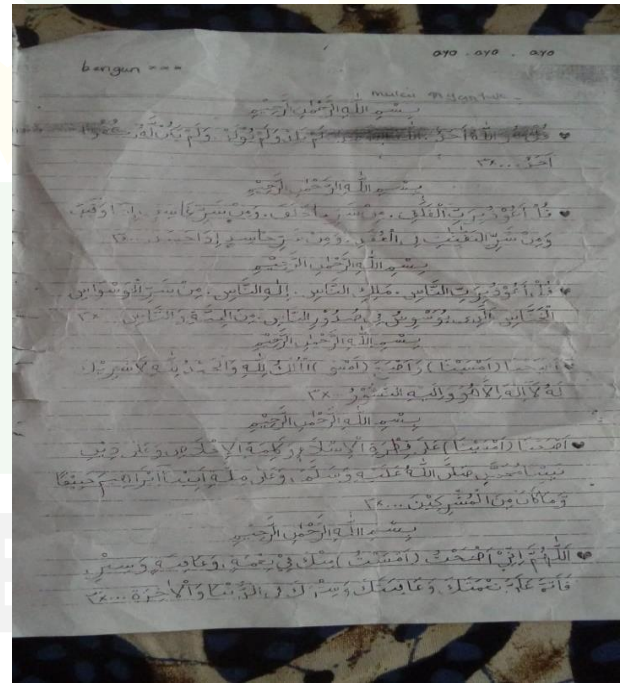 ayo . ayo . ayo
bangun ===
mulai ngantuk -
بِسْمِ اللّٰهِ الرَّحْمٰنِ الرَّحِيْمِ
♥ قُلْ هُوَ اللّٰهُ اَحَدٌ لَمْ يَلِدْ وَلَمْ يُوْلَدْ وَلَمْ يَكُنْ لَّهٗ كُفُوًا
اَحَدٌ ...٣x
بِسْمِ اللّٰهِ الرَّحْمٰنِ الرَّحِيْمِ
♥ قُلْ اَعُوْذُ بِرَبِّ الْفَلَقِ . مِنْ شَرِّ مَا خَلَقَ . وَمِنْ شَرِّ غَاسِقٍ اِذَا وَقَبَ
وَمِنْ شَرِّ النَّفّٰثٰتِ فِى الْعُقَدِ . وَمِنْ شَرِّ حَاسِدٍ اِذَا حَسَدَ ... ٣x
بِسْمِ اللّٰهِ الرَّحْمٰنِ الرَّحِيْمِ
♥ قُلْ اَعُوْذُ بِرَبِّ النَّاسِ . مَلِكِ النَّاسِ . اِلٰهِ النَّاسِ . مِنْ شَرِّ الْوَسْوَاسِ
الْخَنَّاسِ الَّذِى يُوَسْوِسُ فِى صُدُوْرِ النَّاسِ . مِنَ الْجِنَّةِ وَالنَّاسِ ... ٣x
بِسْمِ اللّٰهِ الرَّحْمٰنِ الرَّحِيْمِ
♥ اَصْبَحْنَا (اَمْسَيْنَا) وَاَصْبَحَ (اَمْسَى) الْمُلْكُ لِلّٰهِ وَالْحَمْدُ لِلّٰهِ لَا شَرِيْكَ
لَهٗ لَا اِلٰهَ اِلَّا هُوَ وَاِلَيْهِ النُّشُوْرُ ...٣x
بِسْمِ اللّٰهِ الرَّحْمٰنِ الرَّحِيْمِ
♥ اَصْبَحْنَا (اَمْسَيْنَا) عَلَى فِطْرَةِ الْاِسْلَامِ وَكَلِمَةِ الْاِخْلَاصِ وَعَلَى دِيْنِ
نَبِيِّنَا مُحَمَّدٍ صَلَّى اللّٰهُ عَلَيْهِ وَسَلَّمَ وَعَلَى مِلَّةِ اَبِيْنَا اِبْرَاهِيْمَ حَنِيْفًا
وَمَا كَانَ مِنَ الْمُشْرِكِيْنَ ...٣x
بِسْمِ اللّٰهِ الرَّحْمٰنِ الرَّحِيْمِ
♥ اَللّٰهُمَّ اِنِّيْ اَصْبَحْتُ (اَمْسَيْتُ) مِنْكَ فِيْ نِعْمَةٍ وَعَافِيَةٍ وَسِتْرٍ
فَاَتِمَّ عَلَيَّ نِعْمَتَكَ وَعَافِيَتَكَ وَسِتْرَكَ فِى الدُّنْيَا وَالْاٰخِرَةِ ...٣x